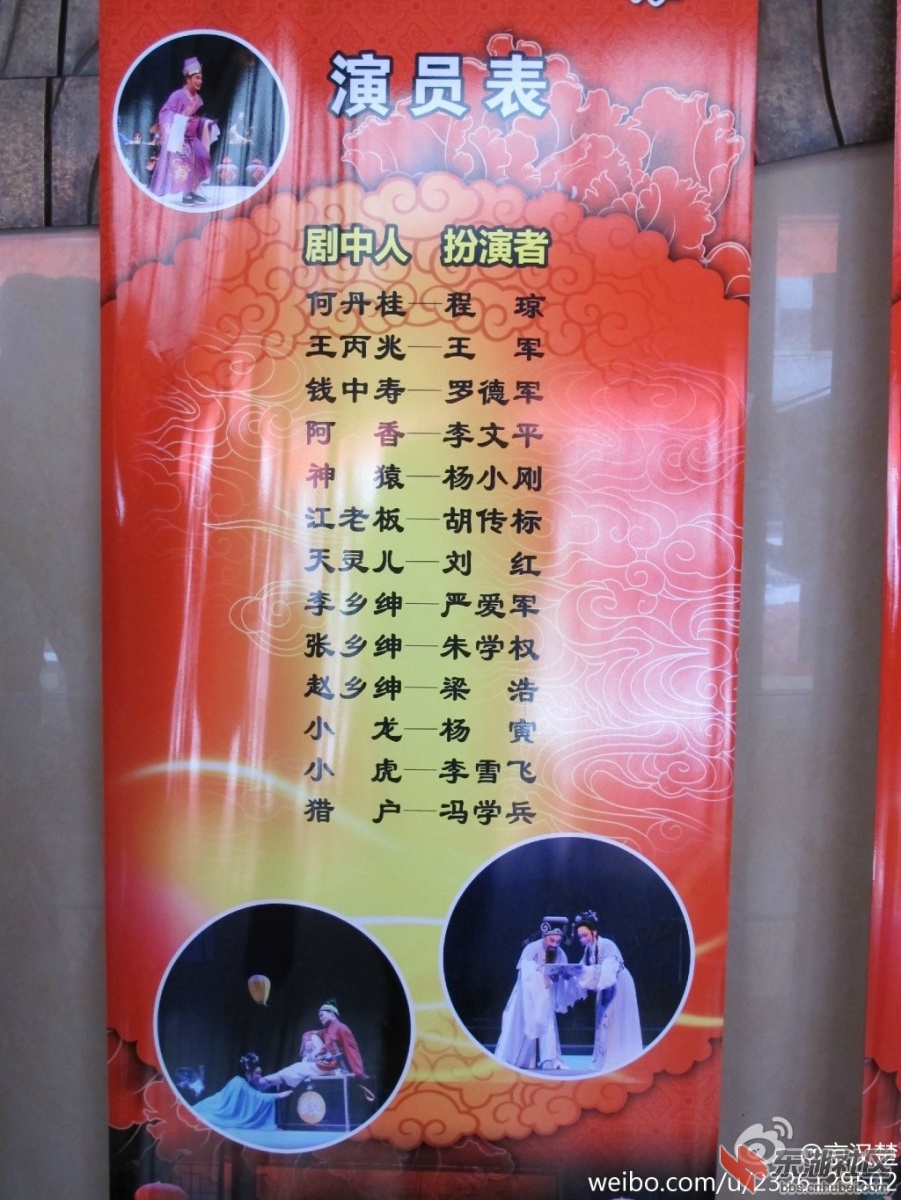 演员表
剧中人 扮演者
何丹桂—程 琼
王丙兆—王 军
钱中寿—罗德军
阿 香—李文平
神 猿—杨小刚
江老板—胡传标
天灵儿—刘 红
李乡绅—严爱军
张乡绅—朱学权
赵乡绅—梁 浩
小 龙—杨 寅
小 虎—李雪飞
猎 户—冯学兵
东湖社区
bbs.cnhubei.com